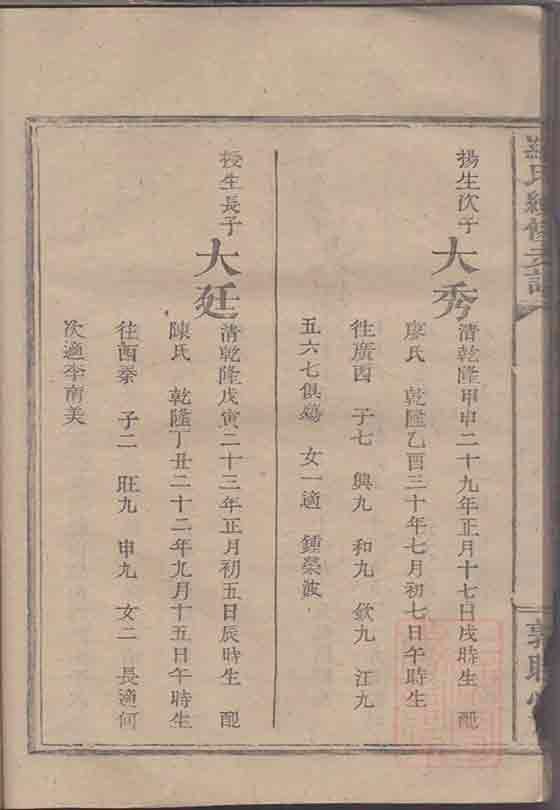 氏續修
揚生次子
大秀
清乾隆甲申二十九年正月十七日戌時生 配
廖氏 乾隆乙酉三十年七月初七日午時生
徃廣西 子七 興九 和九 欽九 江九
五六七俱殤 女一適 鍾榮
授生長子
大廷
清乾隆戊寅二十三年正月初五日辰時生 配
陳氏 乾隆丁丑二十二年九月十五日午時生
徃西泰 子二 旺九 申九 女二 長適何
次適李南美